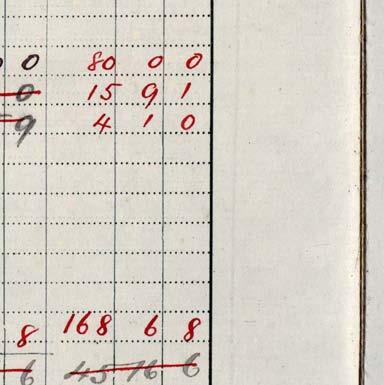 0 80 0 0
0 15 9 1
9 4 1 0
8 168 6 8
6 45 16 6